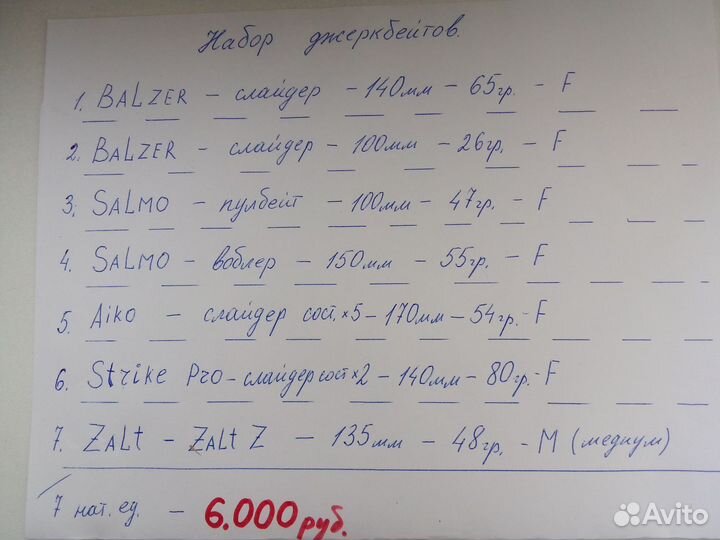 Набор джеркбейтов.
1. BALZER – слайдер – 140мм – 65гр. – F
2. BALZER – слайдер – 100мм – 26гр. – F
3. SALMO – пулбейт – 100мм – 47гр. – F
4. SALMO – воблер – 150мм – 55гр. – F
5. Aiko – слайдер сост. х5 – 170мм – 54гр. – F
6. Strike Pro – слайдер сост х2 – 140мм – 80гр. – F
7. ZALt – ZALt Z – 135мм – 48гр. – М (медиум)
7 нат. ед. – 6.000 руб.
Avito